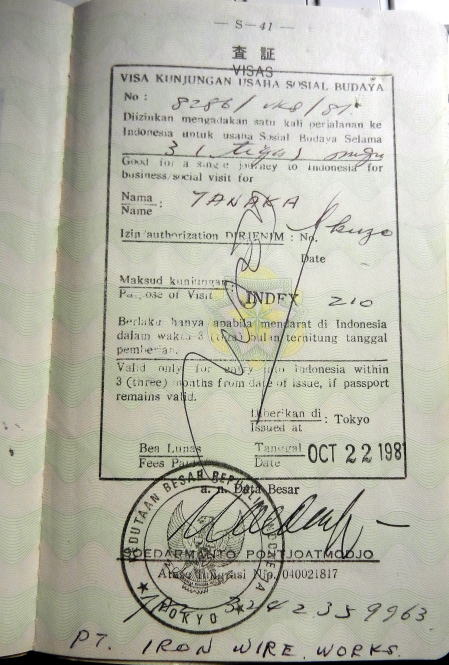 — S—41 —
査証
VISAS
VISA KUNJUNGAN USAHA SOSIAL BUDAYA
No : 8286/VKB/81.
Diizinkan mengadakan satu kali perjalanan ke
Indonesia untuk usaha Sosial Budaya Selama
3 (tiga)
Good for a single journey to Indonesia for
business/social visit for
Nama : TANAKA
Name
Izin/authorization DIRJENIM : No.
Date
Maksud kunjungan :
Purpose of Visit INDEX 210
Berlaku hanya apabila mendarat di Indonesia
dalam waktu 3 (tiga) bulan terhitung tanggal
pemberian.
Valid only for entry into Indonesia within
3 (three) months from date of issue, if passport
remains valid.
Diberikan di : Tokyo
Issued at
Bea Lunas Tanggal OCT 22 1981
Fees Paid Date
a. n. Duta Besar
KEDUTAAN BESAR REPUBLIK INDONESIA
TOKYO
SOEDARMANTO PONTJOATMODJO
Atase Imigrasi Nip. 040021817
3242359963
PT. IRON WIRE WORKS.